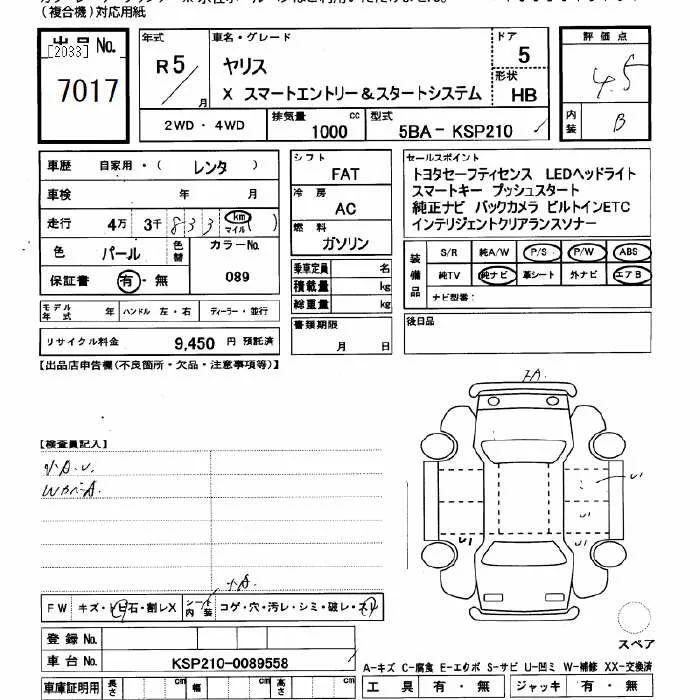 (複合機)対応用紙
出品 No.
[2033]
7017
年式
R5
月
車名・グレード
ヤリス
X スマートエントリー&スタートシステム
ドア
5
形状
HB
2WD・4WD
排気量
cc
1000
型式
5BA-KSP210
評価点
4.5
内装
B
車歴 自家用・( レンタ )
車検 年 月
走行 4万 3千 833 km マイル ( )
色 パール 色替 カラーNo.
保証書 有・無 089
モデル年式 年 ハンドル 左・右 ディーラー・並行
リサイクル料金 9,450 円 預託済
シフト
FAT
冷房
AC
燃料
ガソリン
乗車定員 名
積載量 kg
総重量 kg
書類期限
月 日
セールスポイント
トヨタセーフティセンス LEDヘッドライト
スマートキー プッシュスタート
純正ナビ バックカメラ ビルトインETC
インテリジェントクリアランスソナー
装備品
S/R 純A/W P/S P/W ABS
純TV 純ナビ 革シート 外ナビ エアB
ナビ型番:
後日品
【出品店申告欄(不良箇所・欠品・注意事項等)】
【検査員記入】
小A.U.
WカベA.
小A.
FW キズ・トビ石・割レX シート内装 コゲ・穴・汚レ・シミ・破レ・スリ
登録 No.
車台 No. KSP210-0089558
車庫証明用 長さ cm 幅 cm 高さ cm
U1
U1
U1
スペア
A-キズ C-腐食 E-エクボ S-サビ U-凹ミ W-補修 XX-交換済
工具 有・無 ジャッキ 有・無